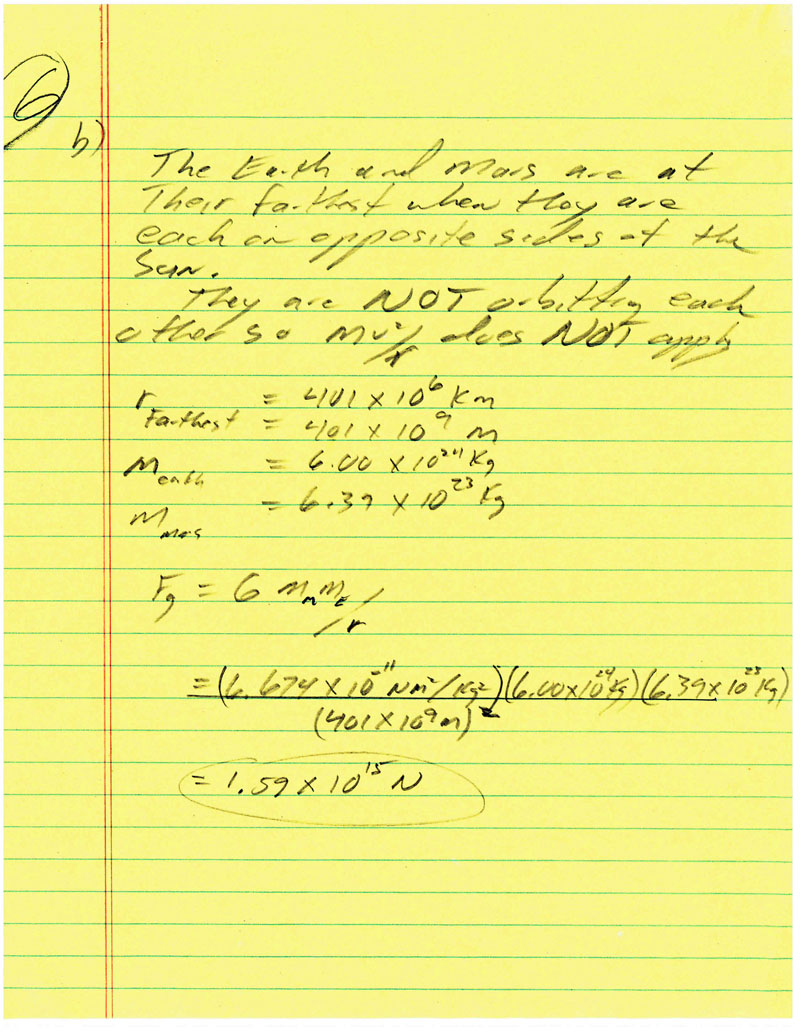 6
b)
The Earth and Mars are at
Their farthest when they are
each on opposite sides of the
Sun.
They are NOT orbiting each
other so mv²/r does NOT apply
r farthest = 401 x 10⁶ Km
= 401 x 10⁹ m
M earth = 6.00 x 10²⁴ Kg
M mars = 6.39 x 10²³ Kg
Fg = G MmME/r
= (6.674 x 10⁻¹¹ Nm²/Kg²)(6.00x10²⁴Kg)(6.39x10²³Kg)
(401x10⁹m)²
= 1.59 x 10¹⁵ N